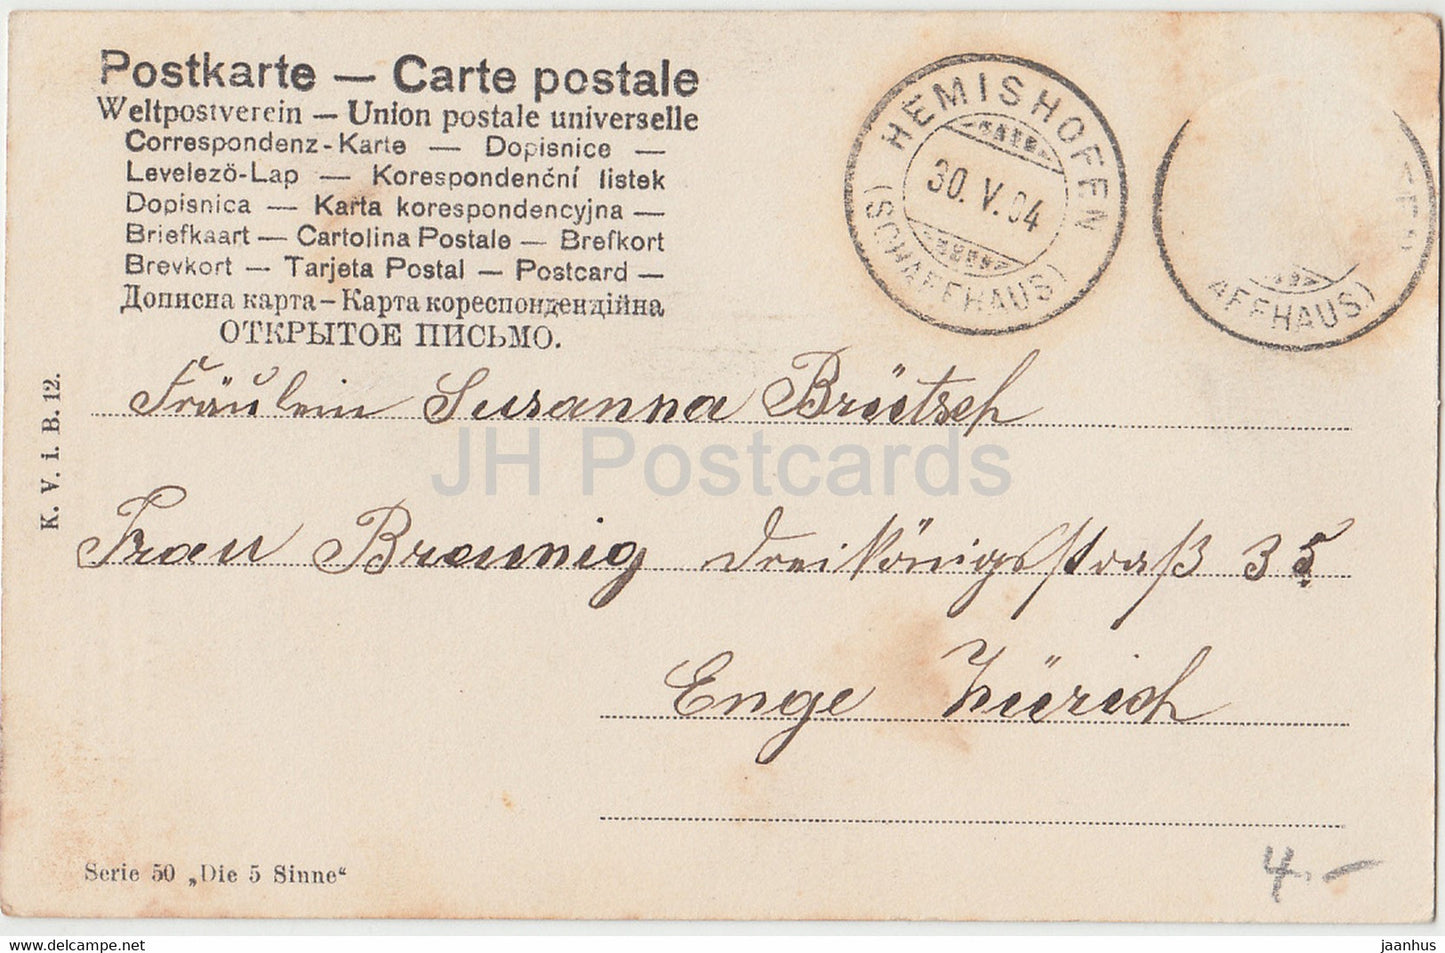 Postkarte — Carte postale
Weltpostverein — Union postale universelle
Correspondenz-Karte — Dopisnice —
Levelezö-Lap — Korespondenční listek
Dopisnica — Karta korespondencyjna —
Briefkaart — Cartolina Postale — Brefkort
Brevkort — Tarjeta Postal — Postcard —
Дописна карта — Карта кореспонденційна
ОТКРЫТОЕ ПИСЬМО.
HEMISHOFEN
30. V. 04
(SCHAFFHAUS)
AFFHAUS.)
K. V. i. B. 12.
Fräulein Susanna Brütsch
JH Postcards
Frau Braunig Dreikönigsstraß 35
Enge Zürich
Serie 50 „Die 5 Sinne“
4.-
jaanhus — www.delcampe.net